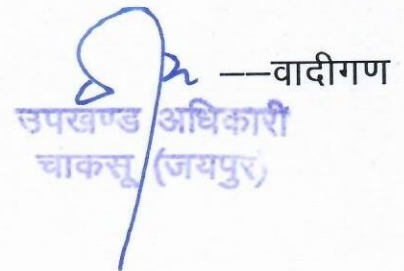 ——वादीगण
उपखण्ड अधिकारी
चाकसू (जयपुर)